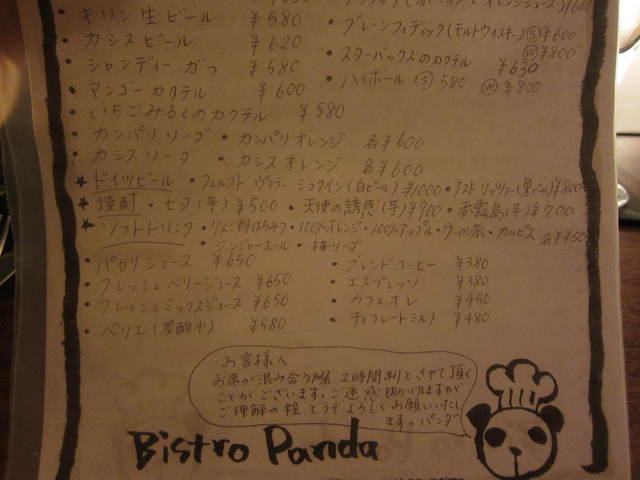 ・キリン生ビール ￥580
・カシスビール ￥620
・グレーンフィディック(モルトウイスキー) Ⓢ￥600 Ⓦ￥800
・シャンディーガフ ￥580
・スターバックスのカクテル ￥630
・マンゴーカクテル ￥600
・ハイボール Ⓢ580 Ⓦ￥800
・いちごみるくのカクテル ￥580
・カンパリソーダ ・カンパリオレンジ 各￥600
・カシスソーダ ・カシスオレンジ 各￥600
★ドイツビール ・フュルスト ヴァラー シュタイン(白ビール)￥1000 (黒ビール)￥800
★焼酎 ・七夕(芋)￥500 ・天使の誘惑(芋)￥900 ・赤霧島(芋)￥700
★ソフトドリンク ・りんご酢はちみつ ・100%オレンジ ・100%アップル ・ウーロン茶 ・カルピス 各￥450
・ジンジャーエール ・梅ソーダ
・パセリジュース ￥650
・フレッシュベリージュース ￥650
・フレッシュミックスジュース ￥650
・ペリエ(炭酸水) ￥580
・ブレンドコーヒー ￥380
・エスプレッソ ￥380
・カフェオレ ￥450
・チョコレートミルク ￥480
お客様へ
お席が混み合う際 2時間制とさせて頂く
ことがございます。ご迷惑おかけしますが
ご理解の程、どうぞよろしくお願いいたし
ます。パンダ
Bistro Panda